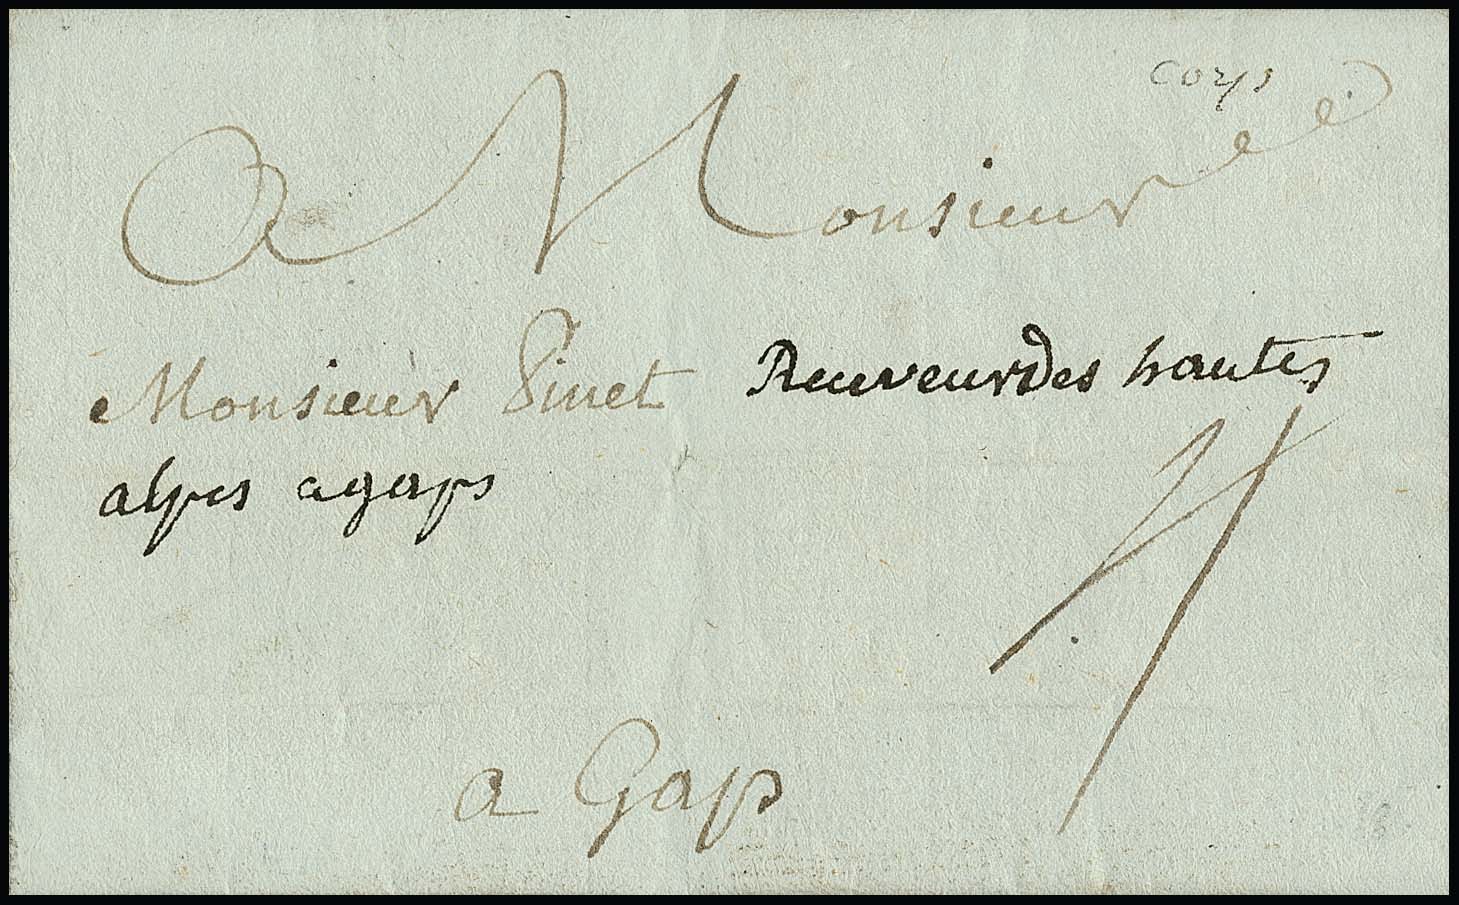 corps
A Monsieur
Monsieur Pinet Receveur des hautes
alpes a gaps
4
a Gap